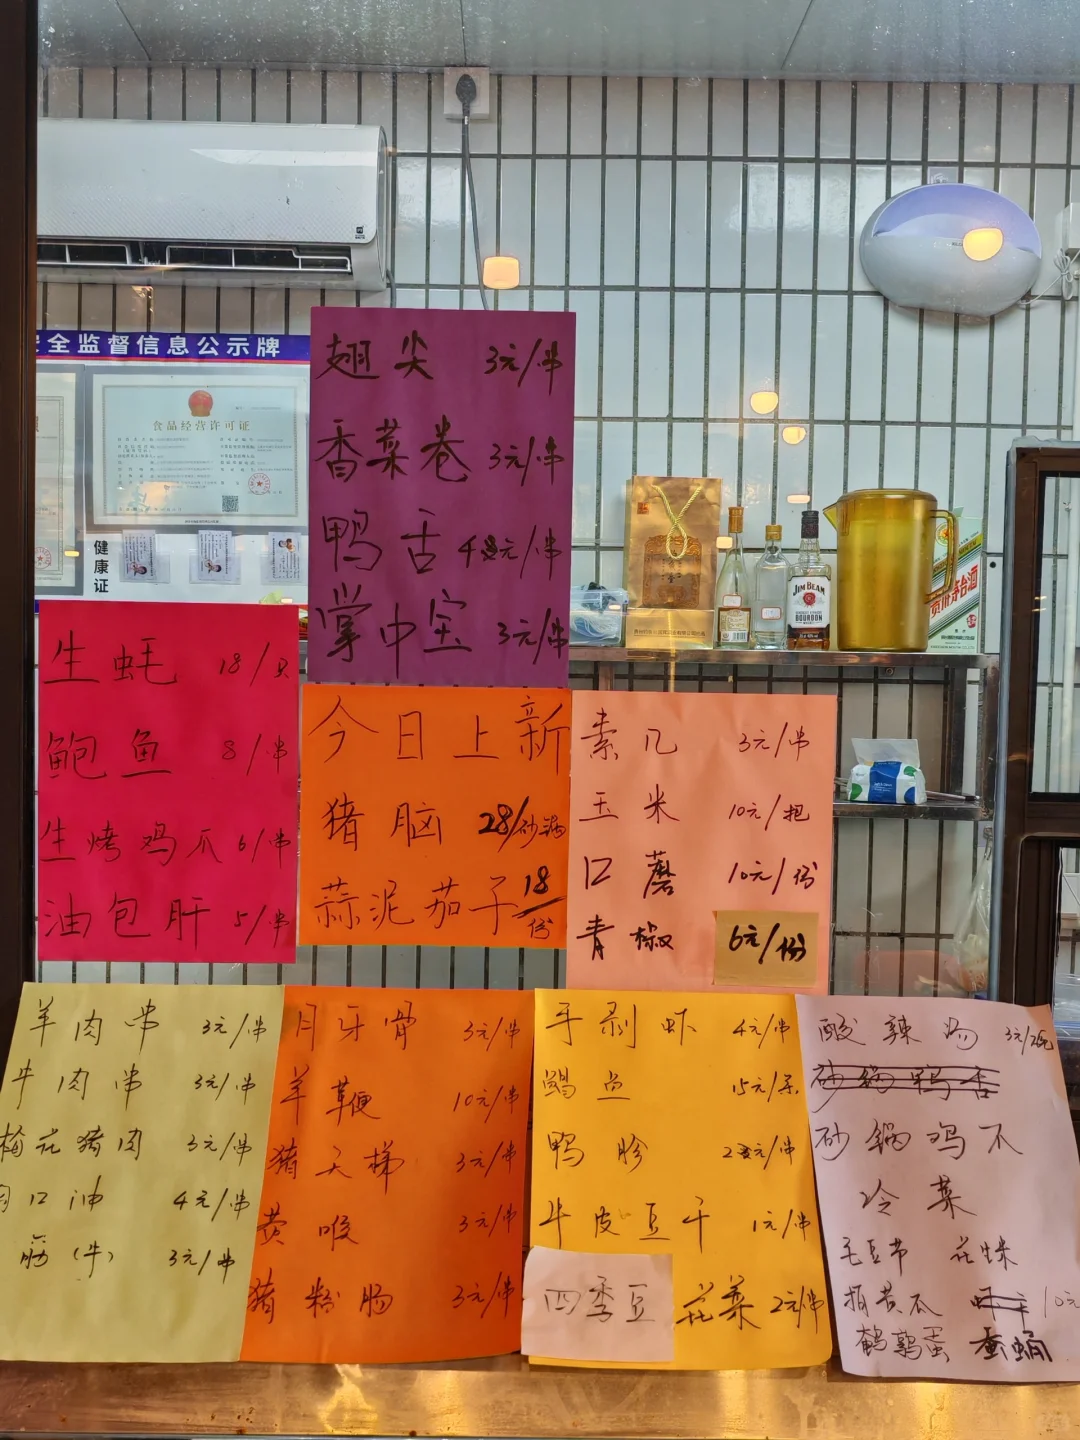 安全监督信息公示牌
食品经营许可证
健康证
翅尖 3元/串
香菜卷 3元/串
鸭舌 4元/串
掌中宝 3元/串
JIM BEAM
BOURBON
贵州茅台酒
生蚝 18/只
鲍鱼 8/串
生烤鸡爪 6/串
油包肝 5/串
今日上新
猪脑 28/砂锅
蒜泥茄子 18/份
素几 3元/串
玉米 10元/把
口蘑 10元/份
青椒 6元/份
羊肉串 3元/串
牛肉串 3元/串
梅花猪肉 3元/串
口油 4元/串
筋(牛) 3元/串
月牙骨 3元/串
羊鞭 10元/串
猪天梯 3元/串
黄喉 3元/串
猪粉肠 3元/串
手剥虾 4元/串
鲳鱼 15元/条
鸭胗 2元/串
牛皮豆干 1元/串
四季豆 花菜 2元/串
酸辣汤 3元/碗
砂锅鸭舌
砂锅鸡爪
冷菜
毛豆节 花生米
拍黄瓜 10元
鹌鹑蛋 蚕蛹